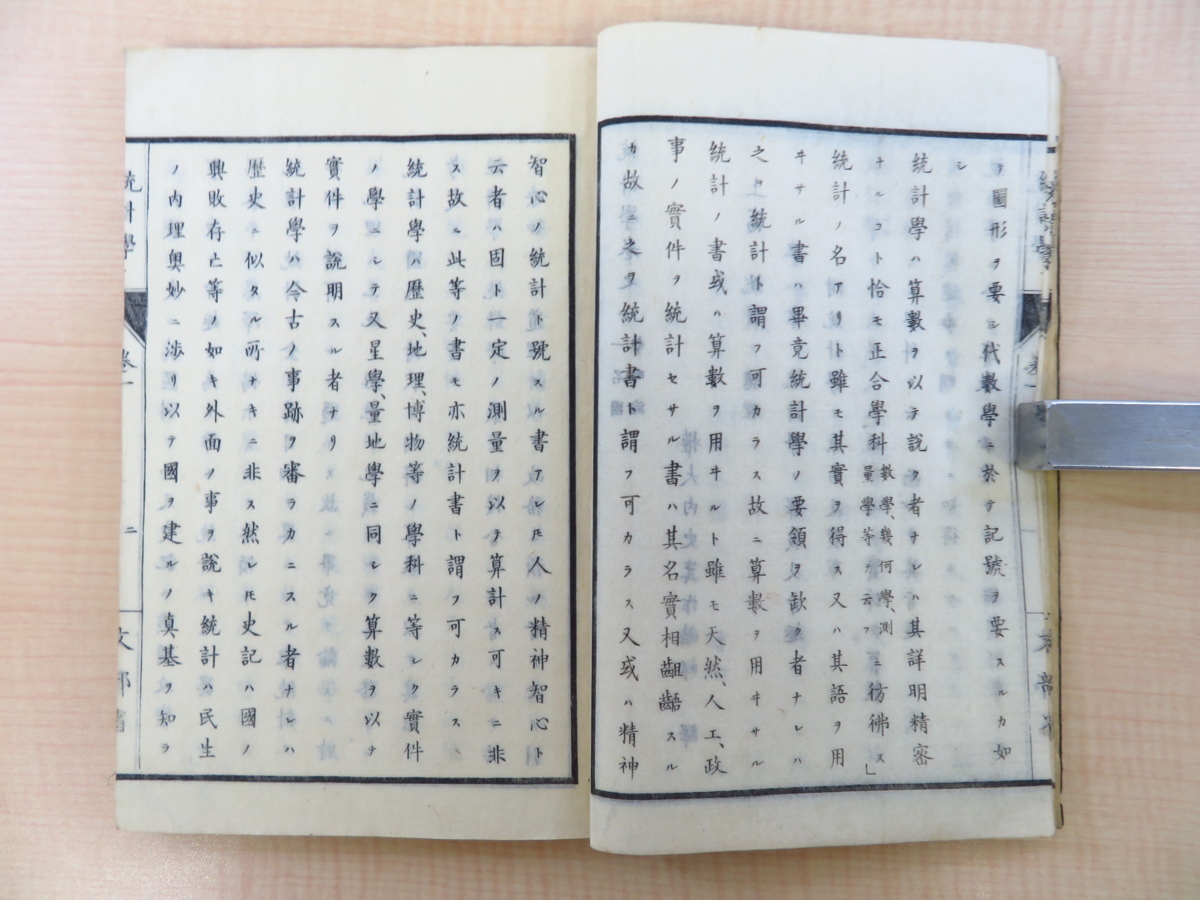 ヲ圖形ヲ要シ代數學ニ於テ記號ヲ要スルカ如
シ
統計學ハ算數ヲ以テ說ク者ナレハ其詳明精密
ナルコト恰モ正合學科數學、幾何學、測量學等ヲ云フニ彷彿ス」
統計ノ名アリト雖モ其實ヲ得ス又ハ其語ヲ用
ヰサル書ハ畢竟統計學ノ要領ヲ欽ク者ナレハ
之ヲ統計ト謂フ可カラス故ニ算數ヲ用ヰサル
統計ノ書或ハ算數ヲ用ヰルト雖モ天然、人工、政
事ノ實件ヲ統計セサル書ハ其名實相齟齬スル
カ故ニ之ヲ統計書ト謂フ可カラス又或ハ精神
統計學
卷一
二
文部省
智心ノ統計ト號スル書アレ𪜈人ノ精神智心ト
云者ハ固ト一定ノ測量ヲ以テ算計ス可キニ非
ス故ニ此等ノ書モ亦統計書ト謂フ可カラス
統計學ハ歷史、地理、博物等ノ學科ニ等シク實件
ノ學ニシテ又星學、量地學ニ同シク算數ヲ以テ
實件ヲ說明スル者ナリ
統計學ハ今古ノ事跡ヲ審ラカニスル者ナレハ
歷史ニ似タル所ナキニ非ス然レ𪜈史記ハ國ノ
興敗存亡等ノ如キ外面ノ事ヲ說キ統計ハ民生
ノ內理奧妙ニ涉リ以テ國ヲ建ルノ眞基ヲ知ラ